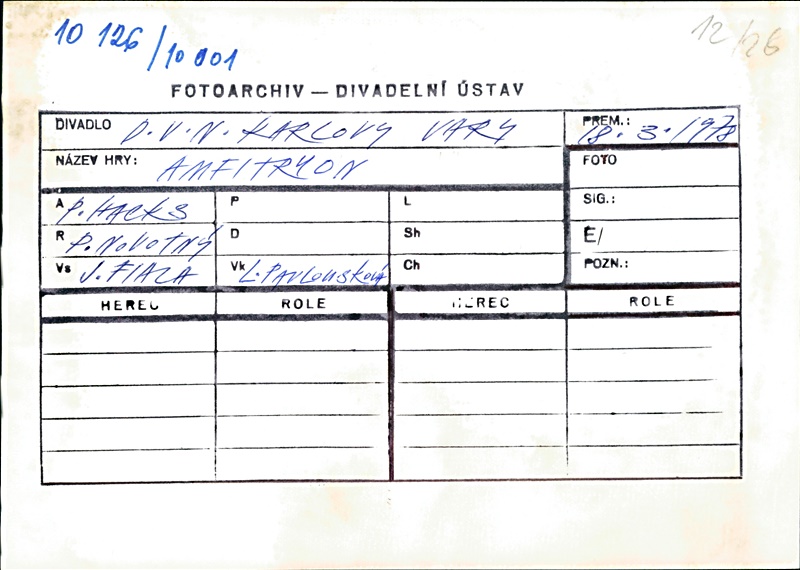 10 126/10 001
12/26
FOTOARCHIV — DIVADELNÍ ÚSTAV
DIVADLO D.V.N. KARLOVY VARY
PREM.: 18. 3. 1978
NÁZEV HRY: AMFITRYON
FOTO
A P. HACKS
P
L
SIG.:
R P. NOVOTNÝ
D
Sh
É/
Vs J. FIALA
Vk L. PAVLOUSKOVÁ
Ch
POZN.:
HEREC ROLE HEREC ROLE